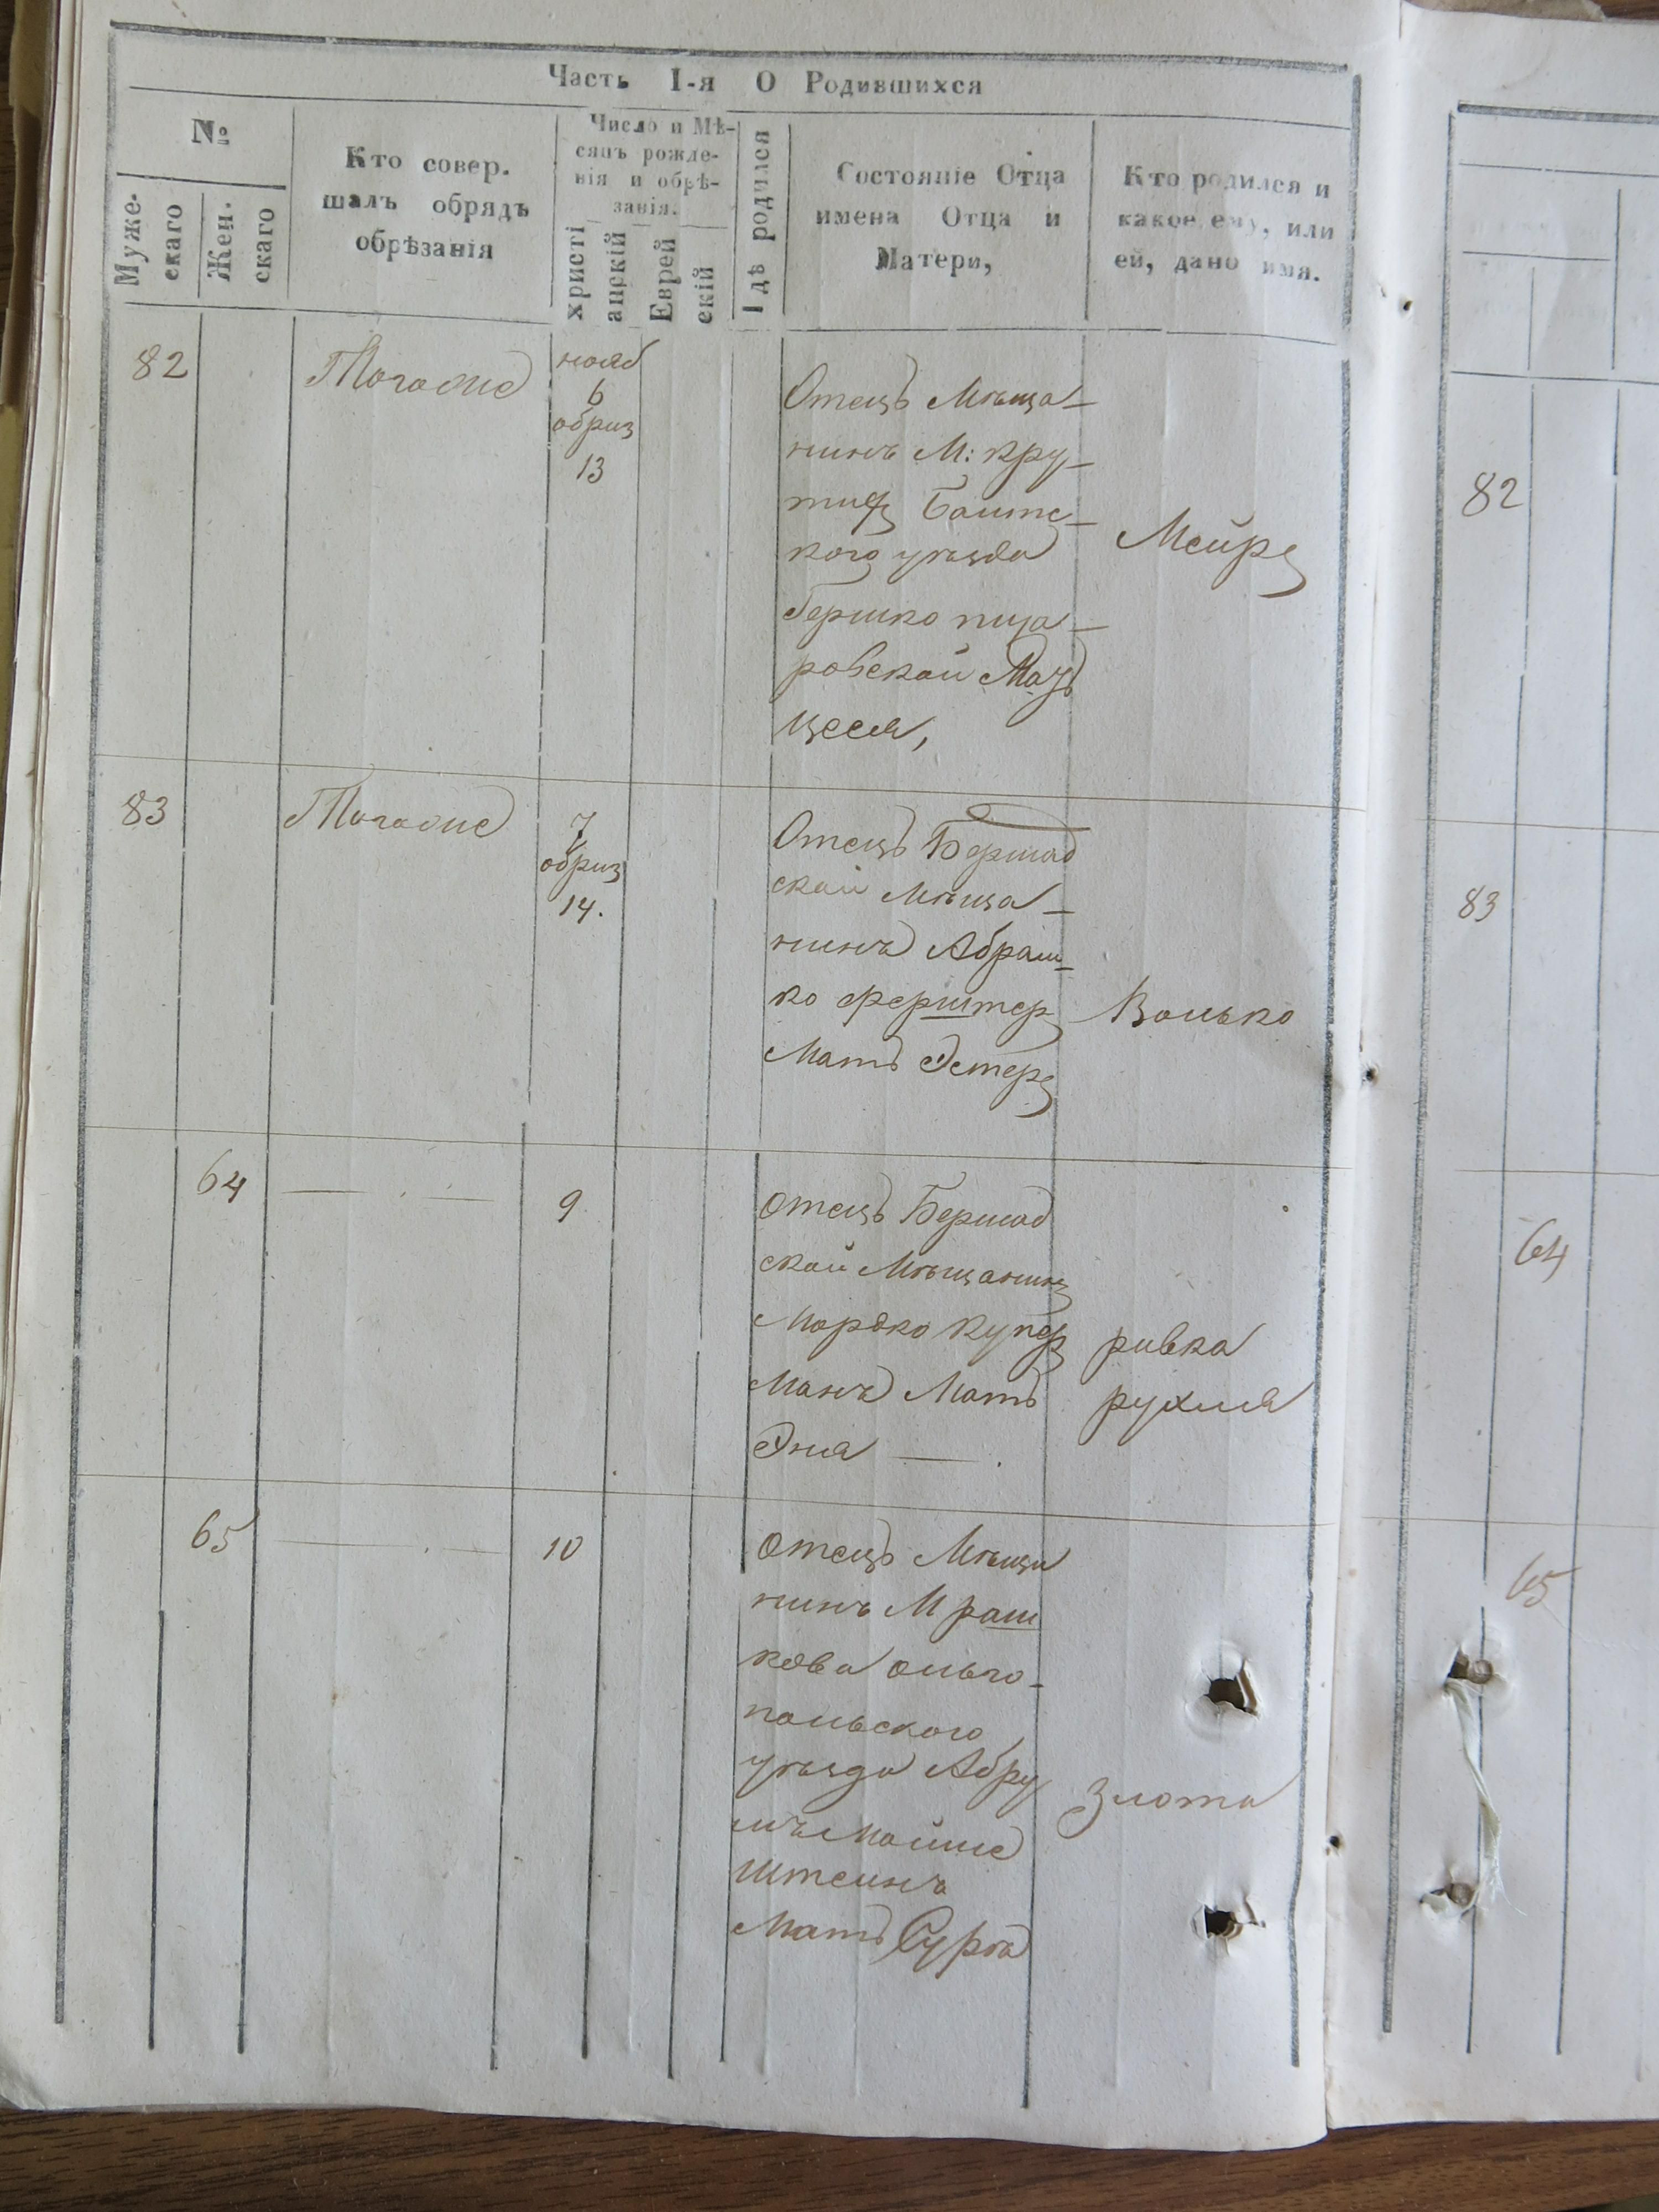 Часть I-я О Родившихся
№
Муже-
скаго
Жен.
скаго
Кто совер.
шалъ обрядъ
обрѣзанія
Число и Мѣ-
сяцъ рожде-
нія и обрѣ-
занія.
христі
анскій
Еврей
скій
Гдѣ родился
Состояніе Отца
имена Отца и
Матери,
Кто родился и
какое ему, или
ей, дано имя.
82
нояб
6
обриз
13
Отецъ Мѣща-
нинъ М: Кру-
тихъ Балтс-
кого уѣзда
Бершко
ровской Мать
Цесея,
Мейръ
82
83
7
обриз
14.
Отецъ Бершад
ской Мѣща-
нинъ Абраш-
ко Ферштеръ
Мать Эстеръ
Волько
83
64
9
Отецъ Бершад
ской Мѣщанинъ
Мордко Купер
Манъ Мать
Эня
ривка
рухля
64
65
10
Отецъ Мѣща
нинъ М раш
кова Ольго-
польского
уѣзда Абру
мъ
Штеинъ
Мать Сура
Злота
65